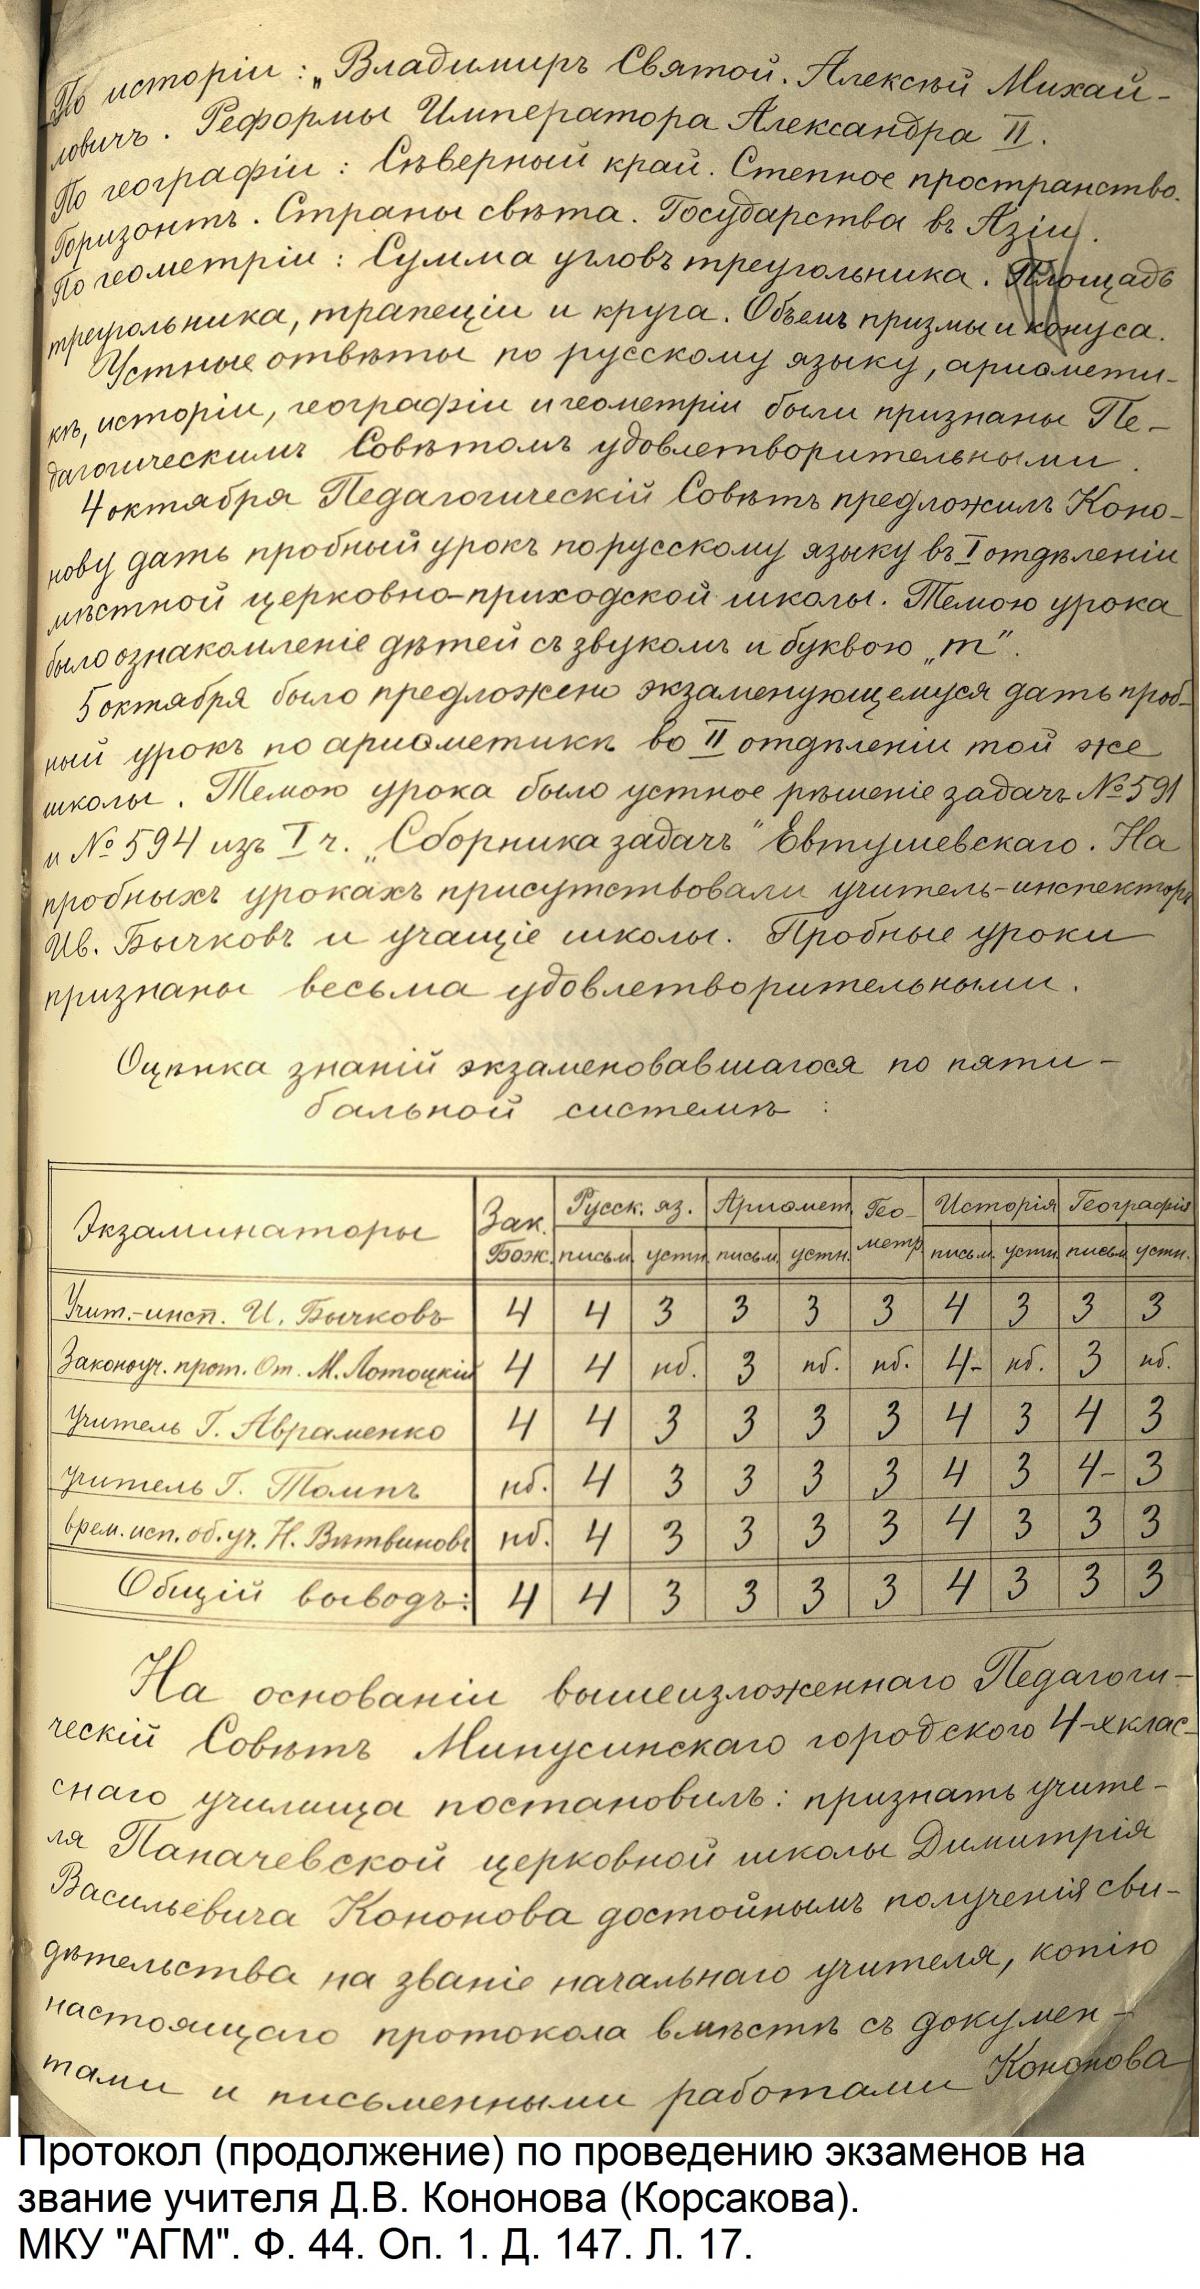 По исторіи: „Владимиръ Святой. Алексѣй Михай-
ловичъ. Реформы Императора Александра II.
По географіи: Сѣверный край. Степное пространство.
Горизонтъ. Страны свѣта. Государства въ Азіи.
По геометріи: Сумма угловъ треугольника. Площадь
треугольника, трапеціи и круга. Объемъ призмы и конуса.
Устные отвѣты по русскому языку, ариѳмети-
кѣ, исторіи, географіи и геометріи были признаны Пе-
дагогическимъ Совѣтомъ удовлетворительными.
4 октября Педагогическій Совѣтъ предложилъ Коно-
нову дать пробный урокъ по русскому языку въ I отдѣленіи
мѣстной церковно-приходской школы. Темою урока
было ознакомленіе дѣтей съ звукомъ и буквою „т".
5 октября было предложено экзаменующемуся дать проб-
ный урокъ по ариѳметикѣ во II отдѣленіи той же
школы. Темою урока было устное рѣшеніе задачъ № 591
и № 594 изъ I ч. „Сборника задачъ" Евтушевскаго. На
пробныхъ урокахъ присутствовали учитель-инспекторъ
Ив. Бычковъ и учащіе школы. Пробные уроки
признаны весьма удовлетворительными.
Оцѣнка знаній экзаменовавшагося по пяти-
бальной системѣ:
Экзаминаторы Зак. Русск. яз. Ариѳмет. Гео- Исторія Географія
Бож. письм. устн. письм. устн. метр. письм. устн. письм. устн.
Учит.-инсп. И. Бычковъ 4 4 3 3 3 3 4 3 3 3
Законоуч. прот. От. М. Лотоцкій 4 4 нб. 3 нб. нб. 4- нб. 3 нб.
Учитель Г. Авраменко 4 4 3 3 3 3 4 3 4 3
Учитель Г. Томпъ нб. 4 3 3 3 3 4 3 4- 3
врем. исп. об. уч. Н. Вѣтвиновъ нб. 4 3 3 3 3 4 3 3 3
Общій выводъ: 4 4 3 3 3 3 4 3 3 3
На основаніи вышеизложеннаго Педагоги-
ческій Совѣтъ Минусинскаго городского 4-хклас-
снаго училища постановилъ: признать учите-
ля Паначевской церковной школы Димитрія
Васильевича Кононова достойнымъ полученія сви-
дѣтельства на званіе начальнаго учителя, копію
настоящаго протокола вмѣстѣ съ докумен-
тами и письменными работами Кононова
Протокол (продолжение) по проведению экзаменов на
звание учителя Д.В. Кононова (Корсакова).
МКУ "АГМ". Ф. 44. Оп. 1. Д. 147. Л. 17.